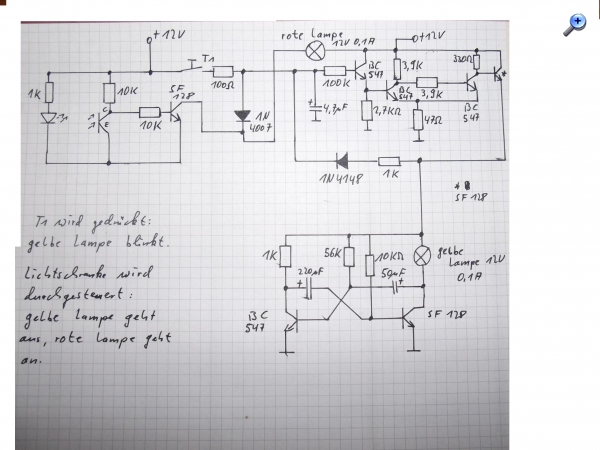 +12V
rote Lampe
12V 0,1A
+12V
T1
1K
10K
SF
128
100Ω
100K
BC
547
3,9K
320Ω
*
C
E
10K
1N
4007
4,7µF
2,7KΩ
BC
547
3,9K
47Ω
BC
547
1N4148
1K
*
SF 128
T1 wird gedrückt:
gelbe Lampe blinkt.
Lichtschranke wird
durchgesteuert:
gelbe Lampe geht
aus, rote Lampe geht
an.
1K
56K
10KΩ
gelbe
Lampe 12V
0,1A
220µF
50µF
BC
547
SF 128